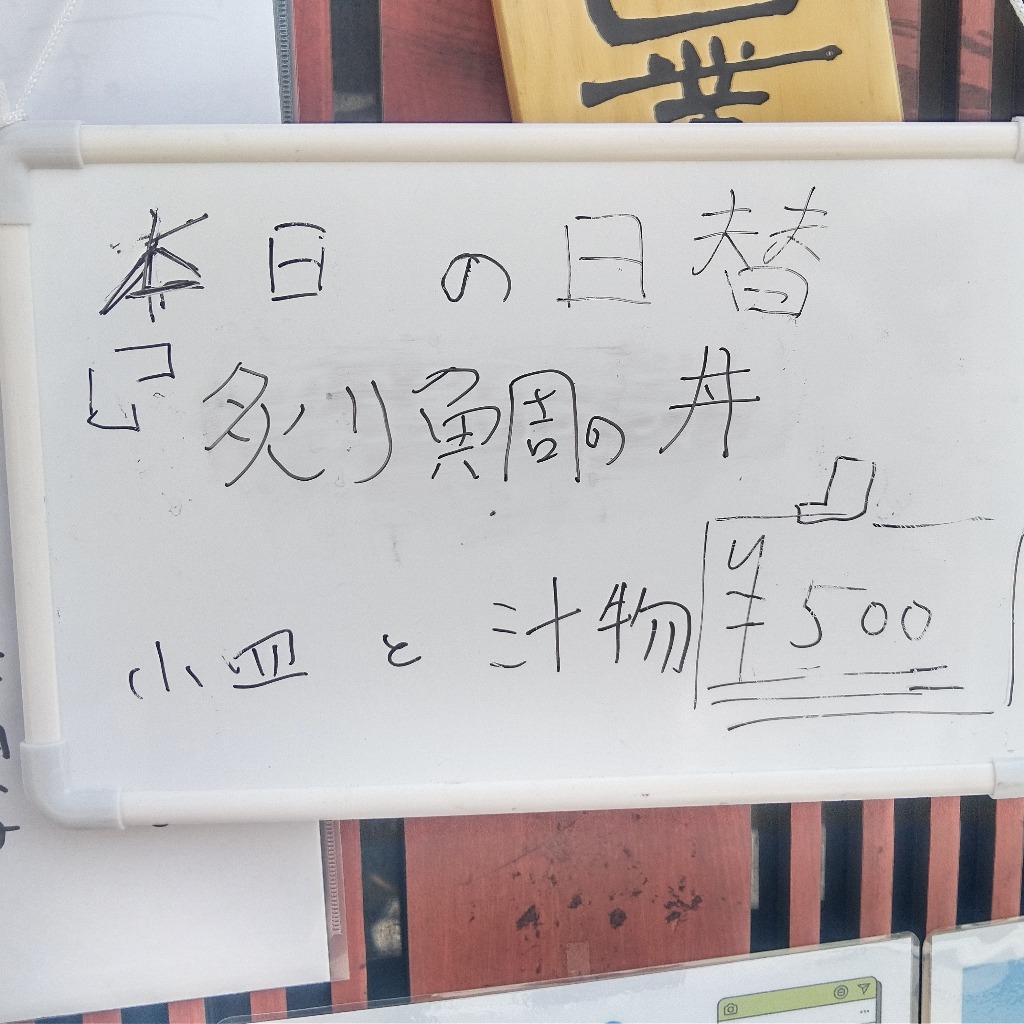 本日の日替
『炙り鯛の丼』
小皿と汁物
¥500